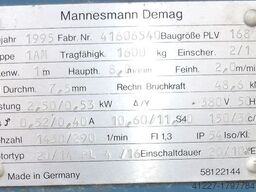 Mannesmann Demag
ejahr 1995 Fabr. Nr. 41606540 Baugröße PLV 168
ppe 1AM Tragfähigk. 1600 kg Einscher. 2/1
enw. 1m Haupth. m/min Feinh. 2,0 m/min
Durchm. 7,5 mm Rechn. Bruchkraft 48,8
2,50/0,53 kW Δ/Y 380 V 50 H
0,52/0,40 A 10,60/11,40 150/3
hzahl 1430/290 1/min FI 1,3 IP 54 Iso/Kl
tortyp 20/16 Einschaltdauer 20/
Made in Germany 58122144
41227-1797784